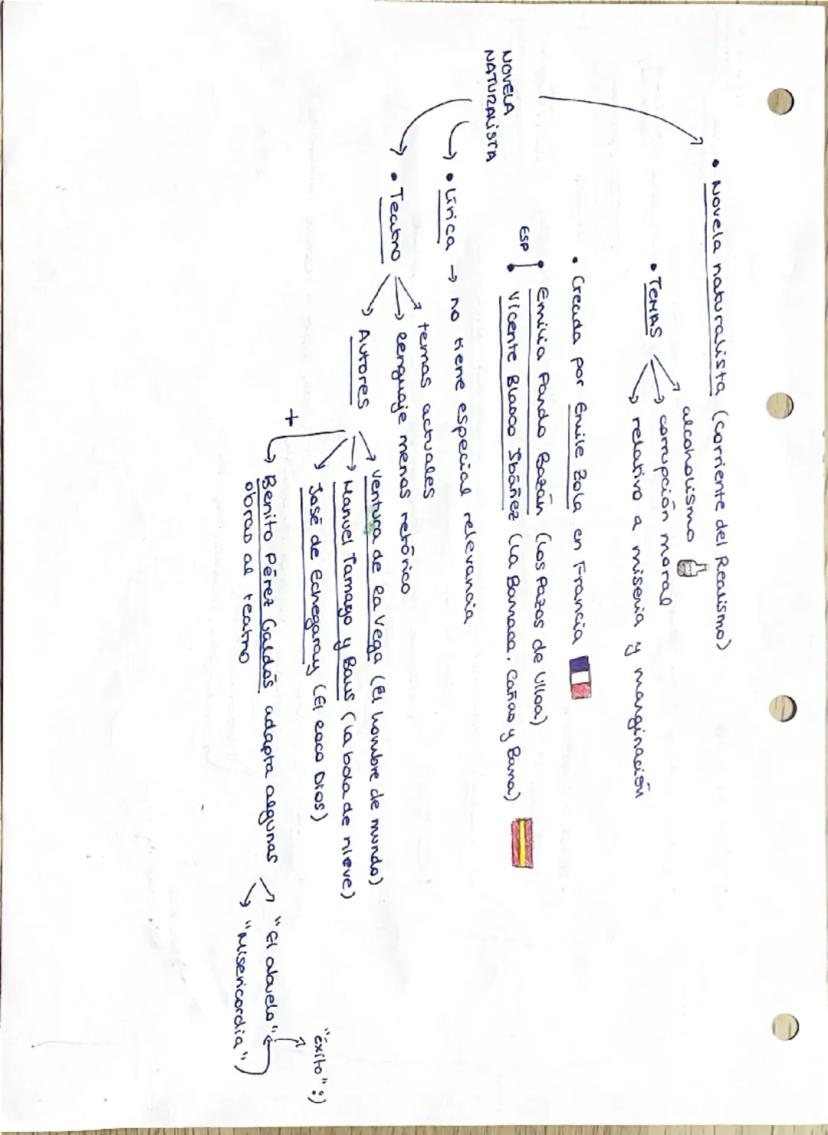 NOVELA
NATURALISTA
• Novela naturalista (corriente del Realismo)
• TEMAS
alcoholismo
corrupción moral
relativo a miseria y marginación
• Creada por Emile Zola en Francia
ESP
• Emilia Pardo Bazán (Los Pazos de Ulloa)
• Vicente Blasco Ibáñez (La Barraca, Cañas y Barro)
• Lírica → no tiene especial relevancia
• Teatro
temas actuales
lenguaje menos retórico
Autores
Ventura de la Vega (El hombre de mundo)
Manuel Tamayo y Baus (La bola de nieve)
José de Echegaray (El loco Dios)
+
Benito Pérez Galdós adapta algunas
obras al teatro
"El abuelo"
"Misericordia"
"éxito" :)